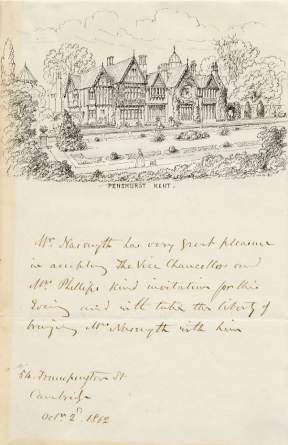 PENSHURST KENT.
Mr. Nasmyth has very great pleasure
in accepting The Vice Chancellors and
Mrs. Phillips kind invitation for this
Evening and will take the liberty of
bringing Mrs Nasmyth with him
54. Trumpington St
Cambridge
Octr. 2d. 1862